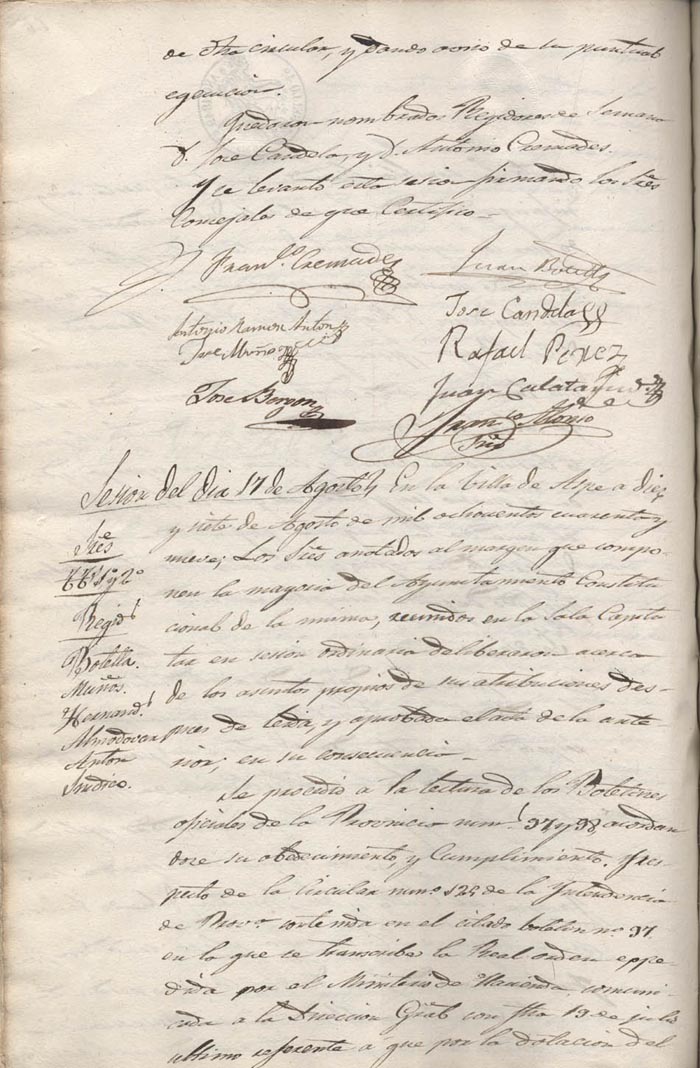 de dha circular, y dando aviso de la puntual
egecucion.
Quedaron nombrados Regidores de Semana
D. Jose Candela, y D. Antonio Cremades.
Y se levantó esta sesion firmando los Sres
Concejales de que Certifico =
Franco. Cremades
Juan Botella
Antonio Ramon Anton
Jose Candela
Jose Muñoz
Rafael Perez
Jose Borgon
Juan Calatayud
Franco Alonso
Srio
Sesion del dia 17 de Agosto
En la Villa de Aspe a diez
y siete de Agosto de mil ochocientos cuarenta y
nueve; Los Sres anotados al margen que compo-
nen la mayoria del Ayuntamiento Constitu
cional de la misma, reunidos en la Sala Capitu
lar en sesion ordinaria deliberaron acerca
de los asuntos propios de su atribuciones des-
pues de leida, y aprobada el acta de la ante
rior; en su consecuencia =
Sres
tts 1º y 2º
Regids
Botella.
Muñoz.
Hernands
Almodovar
Anton
Sindico.
Se procedió á la lectura de los Boletines
oficiales de la Provincia nums 97 y 98 acordan
dose su obedecimiento, y Cumplimiento. Y res-
pecto de la Circular numº 125 de la Yntendencia
de Provª contenida en el citado boletin nº 97
en la que se transcribe la Real orden espe-
dida por el Ministerio de Hacienda, comuni-
cada a la Direccion Gral con fha 19 de julio
ultimo referente á que por la dotacion del